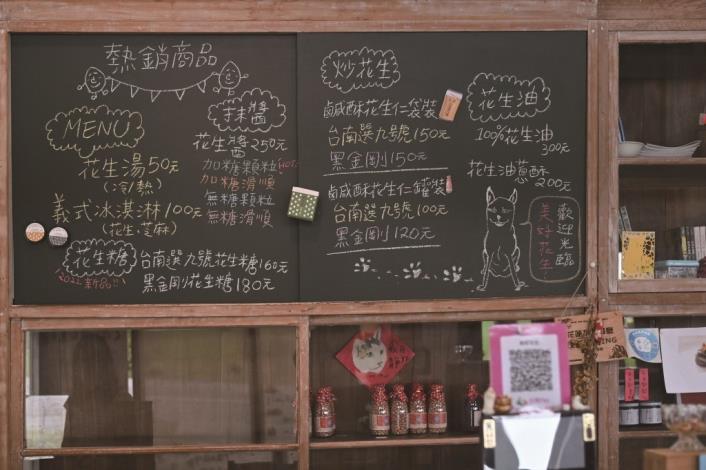 熱銷商品
MENU
花生湯50元
(冷/熱)
義式冰淇淋100元
(花生.芝麻)
抹醬
花生醬250元
加糖顆粒
HOT!
加糖滑順
無糖顆粒
無糖滑順
花生糖
2022新品!!
台南選九號花生糖160元
黑金剛花生糖180元
炒花生
鹹酥花生仁袋裝
台南選九號150元
黑金剛150元
鹹酥花生仁罐裝
台南選九號100元
黑金剛120元
花生油
100%花生油
300元
花生油蔥酥
200元
歡迎光臨
美好花生